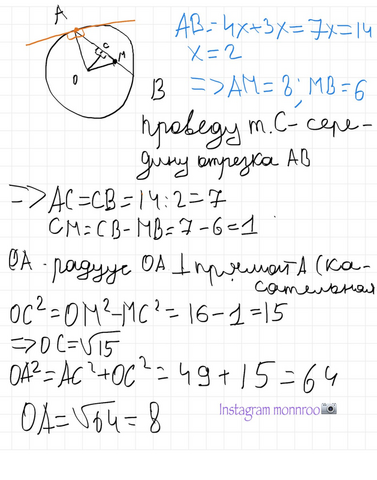 A
C
M
O
B
AB = 4x+3x = 7x = 14
x = 2
=> AM = 8; MB = 6
проведу т. C - сере-
дину отрезка AB
=> AC = CB = 14:2 = 7
CM = CB - MB = 7 - 6 = 1
OA - радиус OA ⊥ прямой A (ка-
сательная
OC² = OM² - MC² = 16 - 1 = 15
=> OC = √15
OA² = AC² + OC² = 49 + 15 = 64
OA = √64 = 8
Instagram monnroo